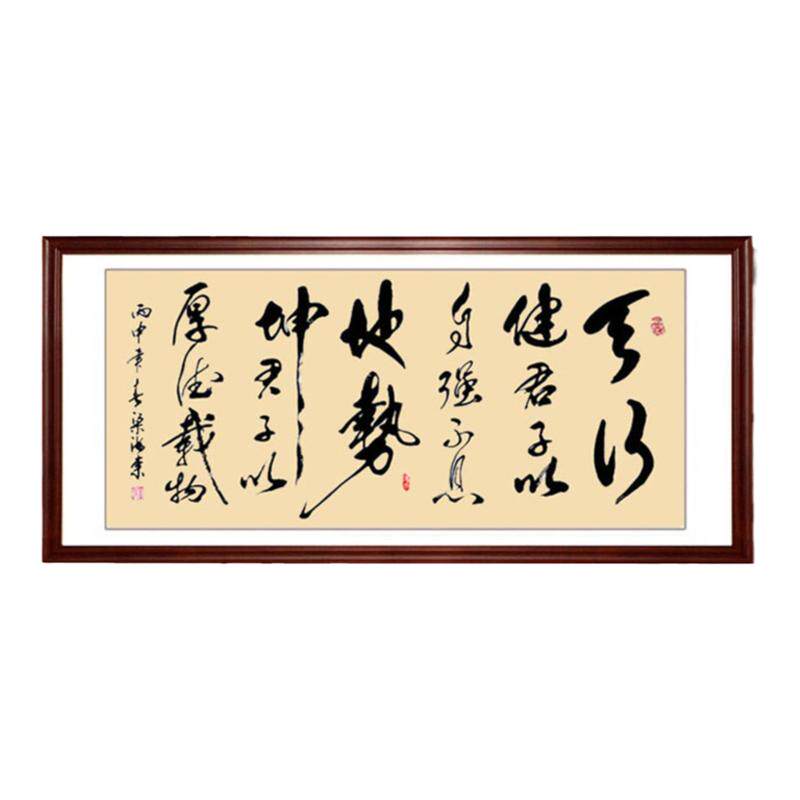 天行
健君子以
自强不息
地勢
坤君子以
厚德載物
丙申年春梁海東